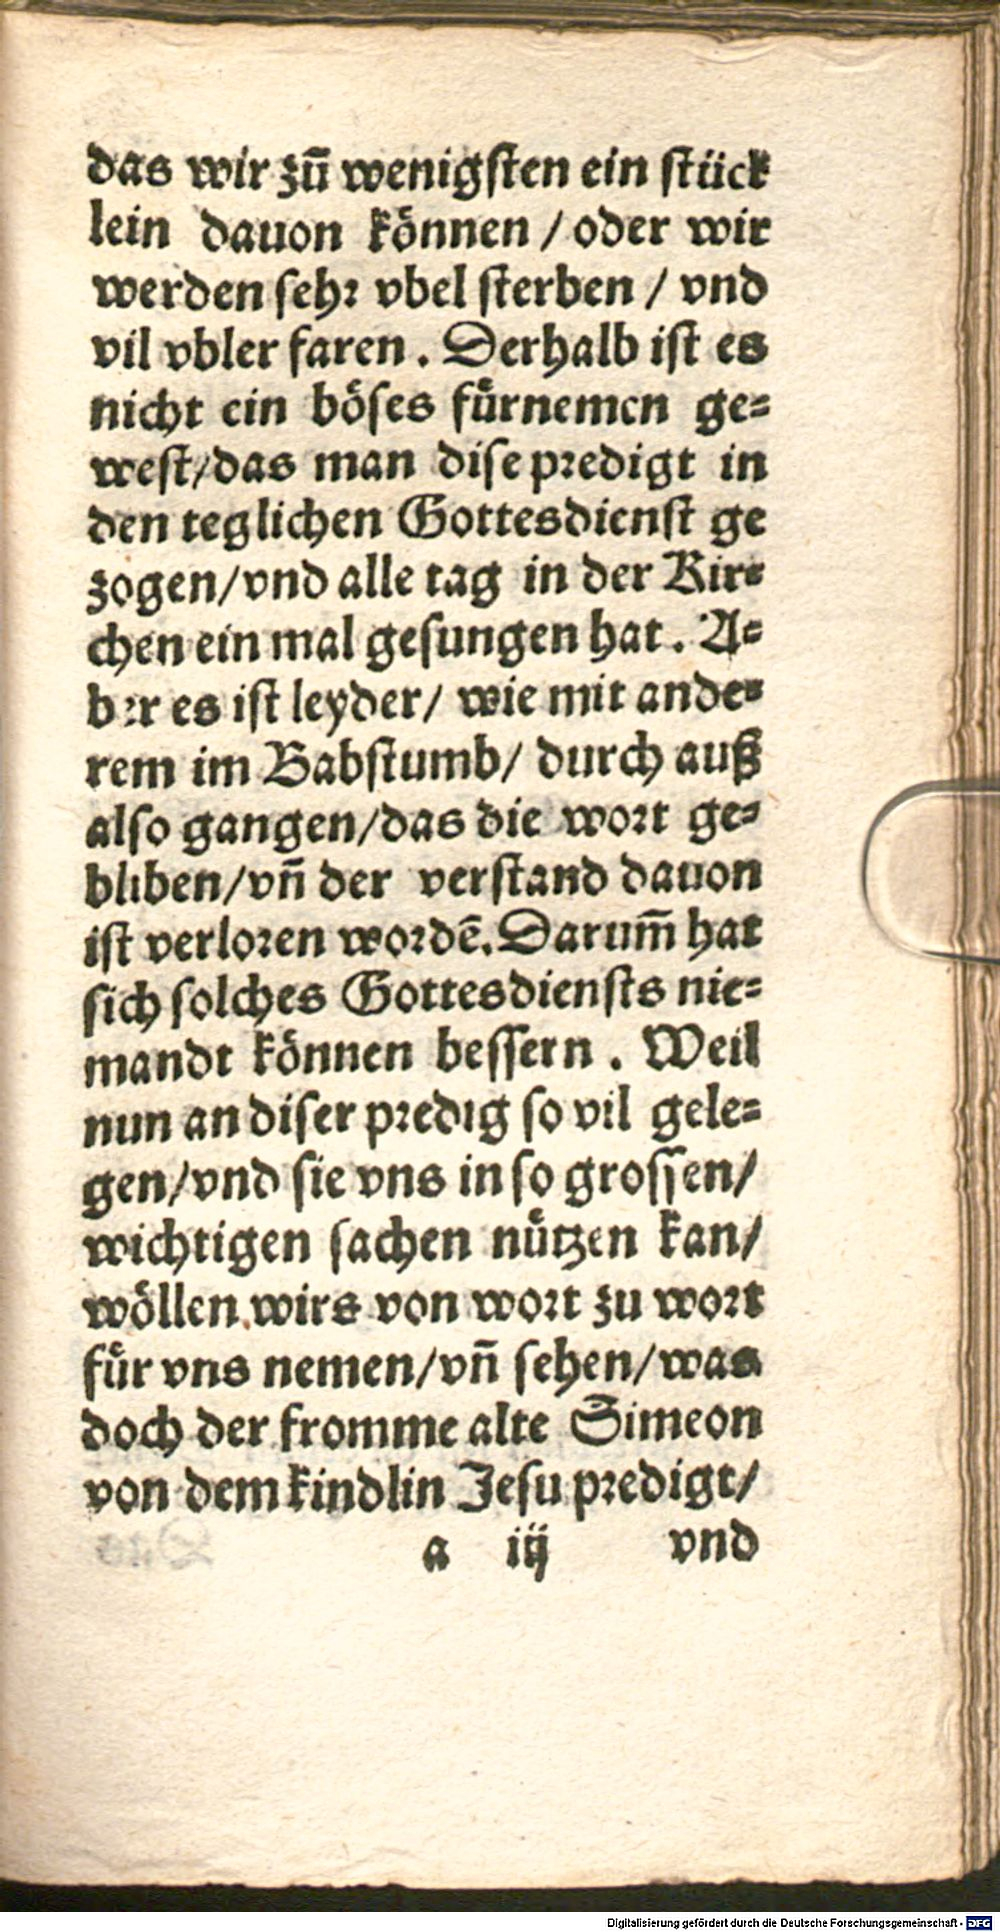 das wir zū wenigſten ein ſtück
lein dauon können / oder wir
werden ſehꝛ vbel ſterben / vnd
vil vbler faren . Derhalb iſt es
nicht ein böſes fuͤrnemen ge⸗
weſt/das man diſe pꝛedigt in
den teglichen Gottesdienſt ge
zogen/vnd alle tag in der Kir⸗
chen ein mal geſungen hat. A⸗
ber es iſt leyder/ wie mit ande⸗
rem im Babſtumb/ durch auß
alſo gangen/das die woꝛt ge⸗
bliben/vn̄ der verſtand dauon
iſt verloꝛen woꝛdē. Darum̄ hat
ſich ſolches Gottesdienſts nie⸗
mandt können beſſern . Weil
nun an diſer pꝛedig ſo vil gele⸗
gen/vnd ſie vns in ſo groſſen/
wichtigen ſachen nuͤtzen kan/
wöllen wirs von woꝛt zu woꝛt
fuͤr vns nemen/vn̄ ſehen/was
doch der fromme alte Simeon
von dem kindlin Jeſu pꝛedigt/
a iij vnd
Digitalisierung gefördert durch die Deutsche Forschungsgemeinschaft - DFG